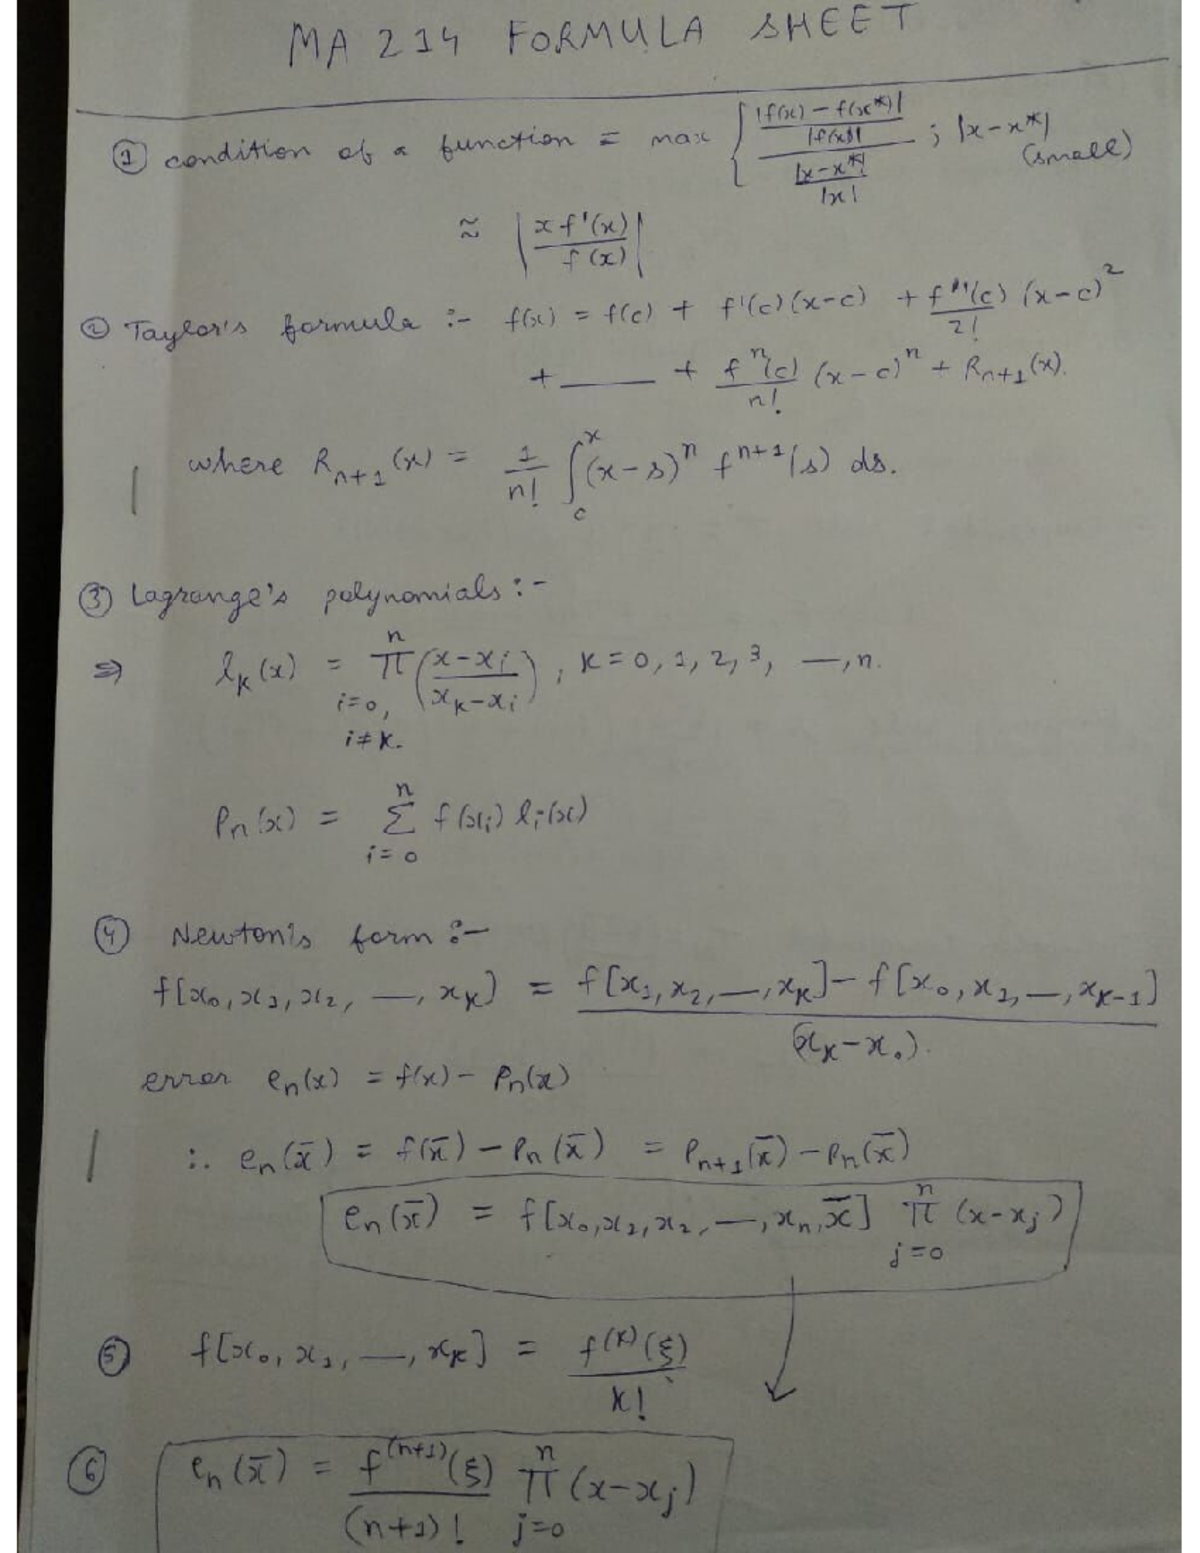 MA 214 FORMULA SHEET
① condition of a function = max { (|f(x) - f(x*)| / |f(x)|) / (|x-x*| / |x|) ; |x-x*| (small)
≈ | x f'(x) / f(x) |
② Taylor's formula :- f(x) = f(c) + f'(c)(x-c) + f''(c)/2! (x-c)²
+ ___ + fⁿ(c)/n! (x-c)ⁿ + Rₙ₊₁(x).
where Rₙ₊₁(x) = 1/n! ∫_c^x (x-s)ⁿ fⁿ⁺¹(s) ds.
③ Lagrange's polynomials :-
⇒ lₖ(x) = ∏_{i=0, i≠k.}^n ((x-xᵢ)/(xₖ-xᵢ)), k=0,1,2,3, —,n.
Pₙ(x) = Σ_{i=0}^n f(xᵢ) lᵢ(x)
④ Newton's form :-
f[x₀,x₁,x₂, —, xₖ] = (f[x₁,x₂,—,xₖ] - f[x₀,x₁,—,xₖ₋₁]) / (xₖ-x₀).
error eₙ(x) = f(x) - Pₙ(x)
∴ eₙ(x̄) = f(x̄) - Pₙ(x̄) = Pₙ₊₁(x̄) - Pₙ(x̄)
eₙ(x̄) = f[x₀,x₁,x₂,—,xₙ,x̄] ∏_{j=0}^n (x-xⱼ)
⑤ f[x₀,x₁,—,xₖ] = f^(k)(ξ) / k!
⑥ eₙ(x̄) = f^(n+1)(ξ) / (n+1)! ∏_{j=0}^n (x-xⱼ)